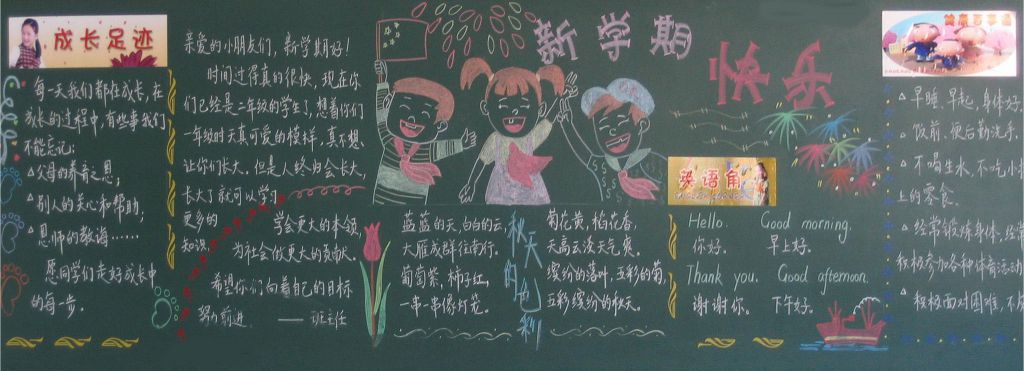 成长足迹
每一天我们都在成长,在
成长的过程中,有些事我们
不能忘记:
父母的养育之恩;
别人的关心和帮助;
恩师的教诲……
愿同学们走好成长中
的每一步。
亲爱的小朋友们,新学期好!
时间过得真的很快,现在你
们已经是二年级的学生了,想着你们
一年级时天真可爱的模样,真不想
让你们长大。但是人终归会长大,
长大了就可以学习
更多的
知识,
学会更大的本领,
为社会做更大的贡献。
希望你们向着自己的目标
努力前进。 —— 班主任
新学期
快乐
蓝蓝的天,白白的云,
大雁成群往南行。
葡萄紫,柿子红,
一串一串像灯笼。
秋天的色彩
菊花黄,稻花香,
天高云淡天气爽。
缤纷的落叶,五彩的菊,
五彩缤纷的秋天。
英语角
Hello. Good morning.
你好。 早上好。
Thank you. Good afternoon.
谢谢你。 下午好。
健康百事通
早睡、早起,身体好,
饭前、便后勤洗手,
不喝生水,不吃
上的零食。
经常锻炼身体,经常
积极参加各种体育活动
积极面对困难,不